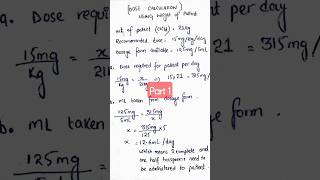 DOSE CALCULATION
using weight of Patient
wt. of patient (child) = 21kg
Recommended dose = 15mg/kg/day
Dosage form available = 125mg/5mL
a. Dose required for patient per day
15mg/kg = x/21 => 15x21 = 315mg/
Part 1
b. mL taken from dosage form.
125mg/5mL = 315mg/x
x = 315mg x5/125
x = 12.6mL/day
which means 2 complete and
one half teaspoon need to be
administered to patient